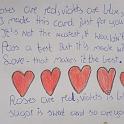 Roses are red, violets are blue,
I made this card just for you
It's not the neatest, it won't
Pass a test But it's made with
Love - that makes it the best.
Roses are red, violets is blue
sugar is sweet and so are you